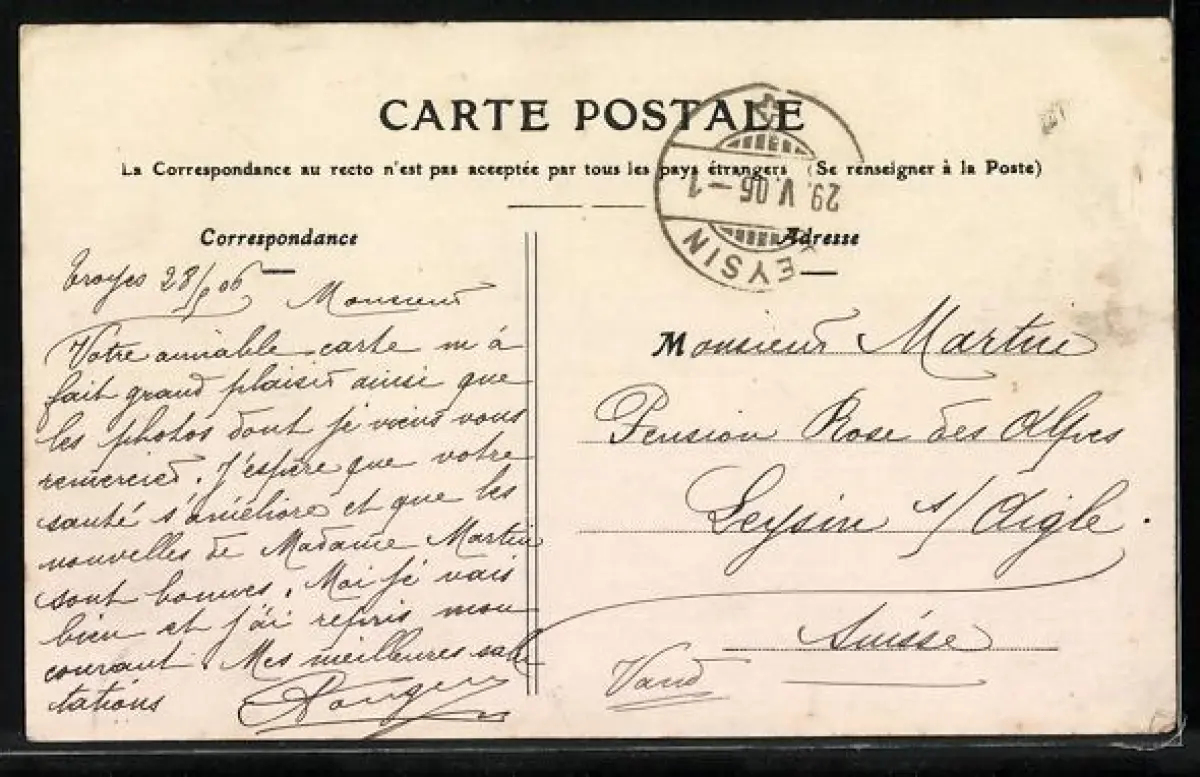 CARTE POSTALE
La Correspondance au recto n'est pas acceptée par tous les pays étrangers (Se renseigner à la Poste)
Correspondance
Troyes 28/5 06
Monsieur
Votre aimable carte m'a
fait grand plaisir ainsi que
les photos dont je viens vous
remercier. J'espère que votre
santé s'améliore et que les
nouvelles de Madame Martin
sont bonnes. Moi je vais
bien et j'ai repris mon
courant. Mes meilleures salu
tations
Adresse
Monsieur Martin
Pension Rose des Alpes
Leysin s/ Aigle.
Suisse
Vaud
29.V.06-1
EYSIN